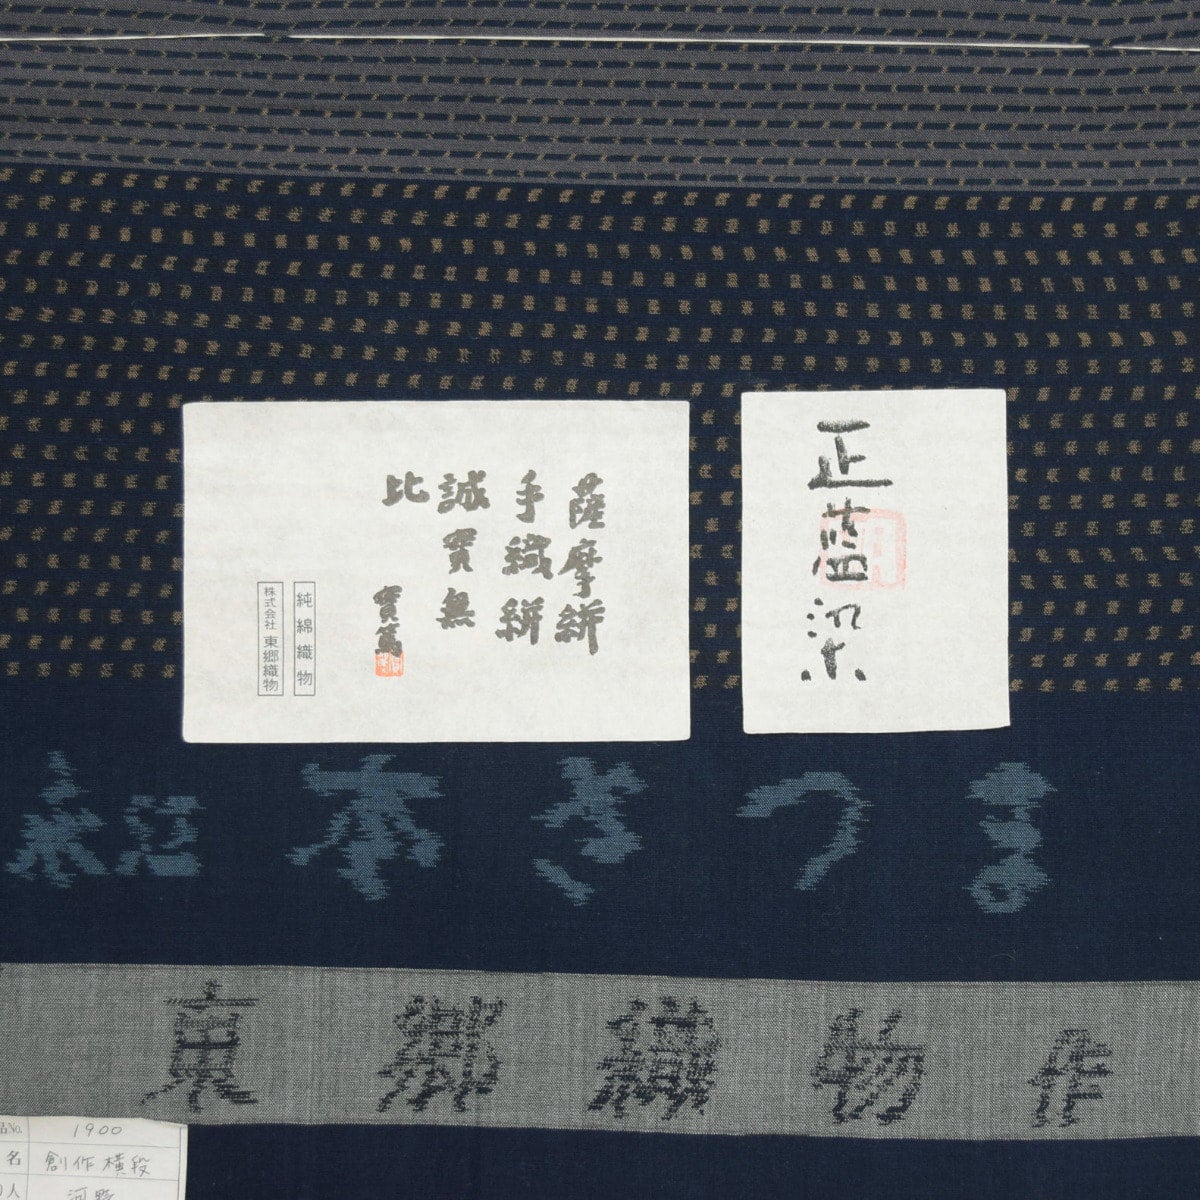 薩摩絣
手織絣
誠実無
比
實篤
純綿織物
株式会社 東郷織物
正藍染
本さつま
東郷織物作
品No. 1900
名 創作横段
人 河野